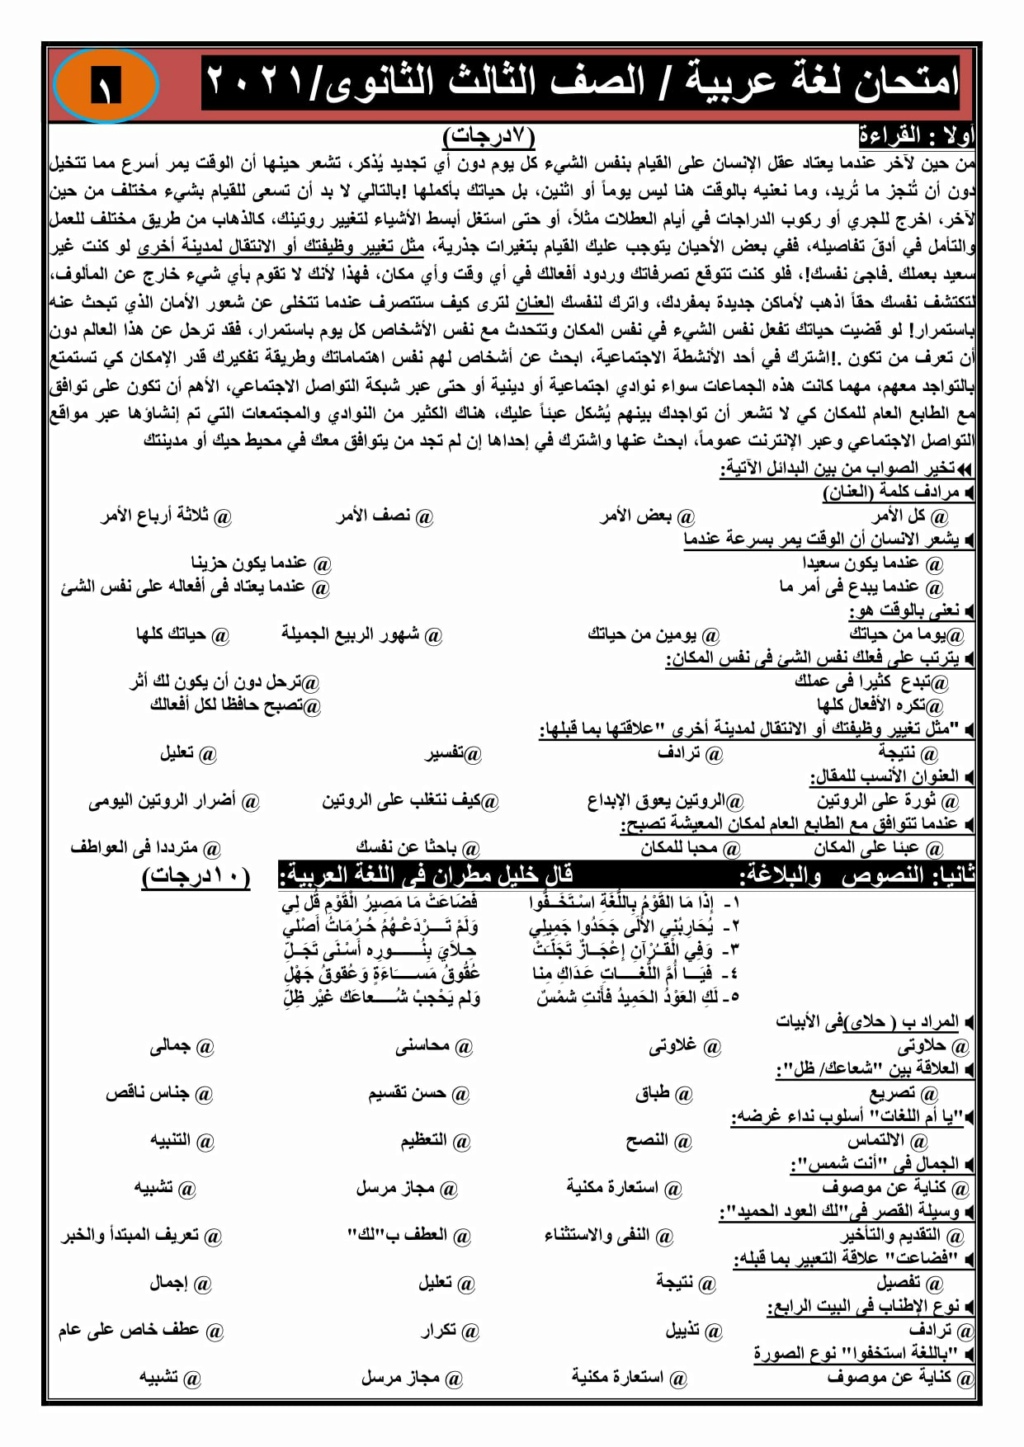 امتحان لغة عربية / الصف الثالث الثانوى/٢٠٢١
١
أولا : القراءة (٧درجات)
من حين لآخر عندما يعتاد عقل الإنسان على القيام بنفس الشيء كل يوم دون أي تجديد يُذكر، تشعر حينها أن الوقت يمر أسرع مما تتخيل
دون أن تُنجز ما تُريد، وما نعنيه بالوقت هنا ليس يوماً أو اثنين، بل حياتك بأكملها !بالتالي لا بد أن تسعى للقيام بشيء مختلف من حين
لآخر، اخرج للجري أو ركوب الدراجات في أيام العطلات مثلاً، أو حتى استغل أبسط الأشياء لتغيير روتينك، كالذهاب من طريق مختلف للعمل
والتأمل في أدقّ تفاصيله، ففي بعض الأحيان يتوجب عليك القيام بتغيرات جذرية، مثل تغيير وظيفتك أو الانتقال لمدينة أخرى لو كنت غير
سعيد بعملك .فاجئ نفسك!، فلو كنت تتوقع تصرفاتك وردود أفعالك في أي وقت وأي مكان، فهذا لأنك لا تقوم بأي شيء خارج عن المألوف،
لتكتشف نفسك حقاً اذهب لأماكن جديدة بمفردك، واترك لنفسك العنان لترى كيف ستتصرف عندما تتخلى عن شعور الأمان الذي تبحث عنه
باستمرار! لو قضيت حياتك تفعل نفس الشيء في نفس المكان وتتحدث مع نفس الأشخاص كل يوم باستمرار، فقد ترحل عن هذا العالم دون
أن تعرف من تكون .!اشترك في أحد الأنشطة الاجتماعية، ابحث عن أشخاص لهم نفس اهتماماتك وطريقة تفكيرك قدر الإمكان كي تستمتع
بالتواجد معهم، مهما كانت هذه الجماعات سواء نوادي اجتماعية أو دينية أو حتى عبر شبكة التواصل الاجتماعي، الأهم أن تكون على توافق
مع الطابع العام للمكان كي لا تشعر أن تواجدك بينهم يُشكل عبئاً عليك، هناك الكثير من النوادي والمجتمعات التي تم إنشاؤها عبر مواقع
التواصل الاجتماعي وعبر الإنترنت عموماً، ابحث عنها واشترك في إحداها إن لم تجد من يتوافق معك في محيط حيك أو مدينتك
تخير الصواب من بين البدائل الآتية:
مرادف كلمة (العنان)
@ كل الأمر @ بعض الأمر @ نصف الأمر @ ثلاثة أرباع الأمر
يشعر الانسان أن الوقت يمر بسرعة عندما
@ عندما يكون سعيدا @ عندما يكون حزينا
@ عندما يبدع فى أمر ما @ عندما يعتاد فى أفعاله على نفس الشئ
نعنى بالوقت هو:
@يوما من حياتك @ يومين من حياتك @ شهور الربيع الجميلة @ حياتك كلها
يترتب على فعلك نفس الشئ فى نفس المكان:
@تبدع كثيرا فى عملك @ترحل دون أن يكون لك أثر
@تكره الأفعال كلها @تصبح حافظا لكل أفعالك
"مثل تغيير وظيفتك أو الانتقال لمدينة أخرى "علاقتها بما قبلها:
@ نتيجة @ ترادف @تفسير @ تعليل
العنوان الأنسب للمقال:
@ ثورة على الروتين @الروتين يعوق الإبداع @كيف نتغلب على الروتين @ أضرار الروتين اليومى
عندما تتوافق مع الطابع العام لمكان المعيشة تصبح:
@ عبئا على المكان @ محبا للمكان @ باحثا عن نفسك @ مترددا فى العواطف
ثانيا: النصوص والبلاغة: قال خليل مطران فى اللغة العربية: (١٠درجات)
١- إِذَا مَا القَوْمُ بِاللُّغَةِ اسْتَخَفُّوا فَضَاعَتْ مَا مَصِيرُ الْقَوْمِ قُلْ لِي
٢- يُحَارِبُنِي الأُلَى جَحَدُوا جَمِيلِي وَلَمْ تَرْدَعْهُمُ حُرُمَاتُ أَصْلِي
٣- وَفِي الْقُرْآنِ إِعْجَازٌ تَجَلَّتْ حِلاَيَ بِنُورِهِ أَسْنَى تَجَلِّ
٤- فَيَا أُمَّ اللُّغَاتِ عَدَاكِ مِنا عُقُوقُ مَسَاءَةٍ وَعُقوقُ جَهْلِ
٥- لَكِ العَوْدُ الحَمِيدُ فأَنتِ شمْسٌ وَلم يَحْجبْ شُعاعَك غيْر ظِلِّ
المراد ب ( حلاى)فى الأبيات
@ حلاوتى @ غلاوتى @ محاسنى @ جمالى
العلاقة بين "شعاعك/ ظل":
@ تصريع @ طباق @ حسن تقسيم @ جناس ناقص
"يا أم اللغات" أسلوب نداء غرضه:
@ الالتماس @ النصح @ التعظيم @ التنبيه
الجمال فى "أنت شمس":
@ كناية عن موصوف @ استعارة مكنية @ مجاز مرسل @ تشبيه
وسيلة القصر فى"لك العود الحميد":
@ التقديم والتأخير @ النفى والاستثناء @ العطف ب"لك" @ تعريف المبتدأ والخبر
"فضاعت" علاقة التعبير بما قبله:
@ تفصيل @ نتيجة @ تعليل @ إجمال
نوع الإطناب فى البيت الرابع:
@ ترادف @ تذييل @ تكرار @ عطف خاص على عام
"باللغة استخفوا" نوع الصورة
@ كناية عن موصوف @ استعارة مكنية @ مجاز مرسل @ تشبيه